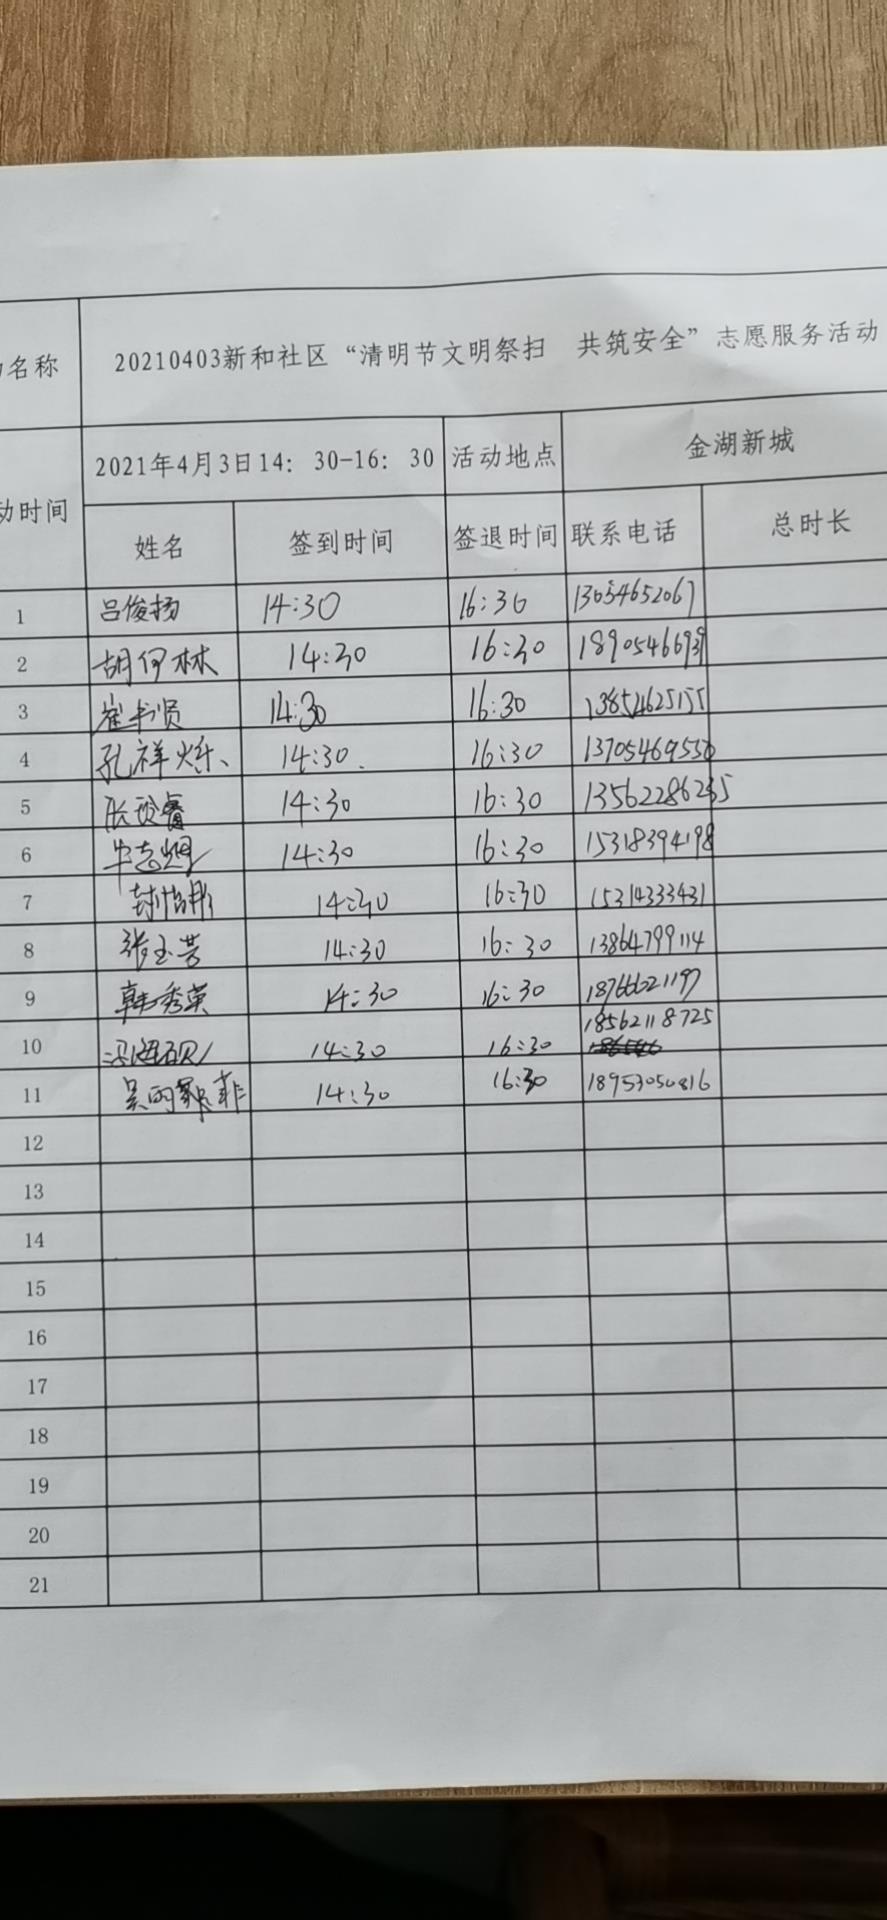 名称 20210403新和社区“清明节文明祭扫 共筑安全”志愿服务活动
动时间 2021年4月3日14：30-16：30 活动地点 金湖新城
姓名 签到时间 签退时间 联系电话 总时长
1 吕俊扬 14:30 16:30 13054652067
2 胡何林 14:30 16:30
3 崔书贤 14:30 16:30
4 孔祥烁 14:30 16:30 13705469550
5 14:30 16:30
6 14:30 16:30 15318394198
7 14:30 16:30 15314333431
8 张玉芳 14:30 16:30 13864799114
9 韩秀英 14:30 16:30 18766621197
10 14:30 16:30 18562118725
11 14:30 16:30 18953050816
12
13
14
15
16
17
18
19
20
21